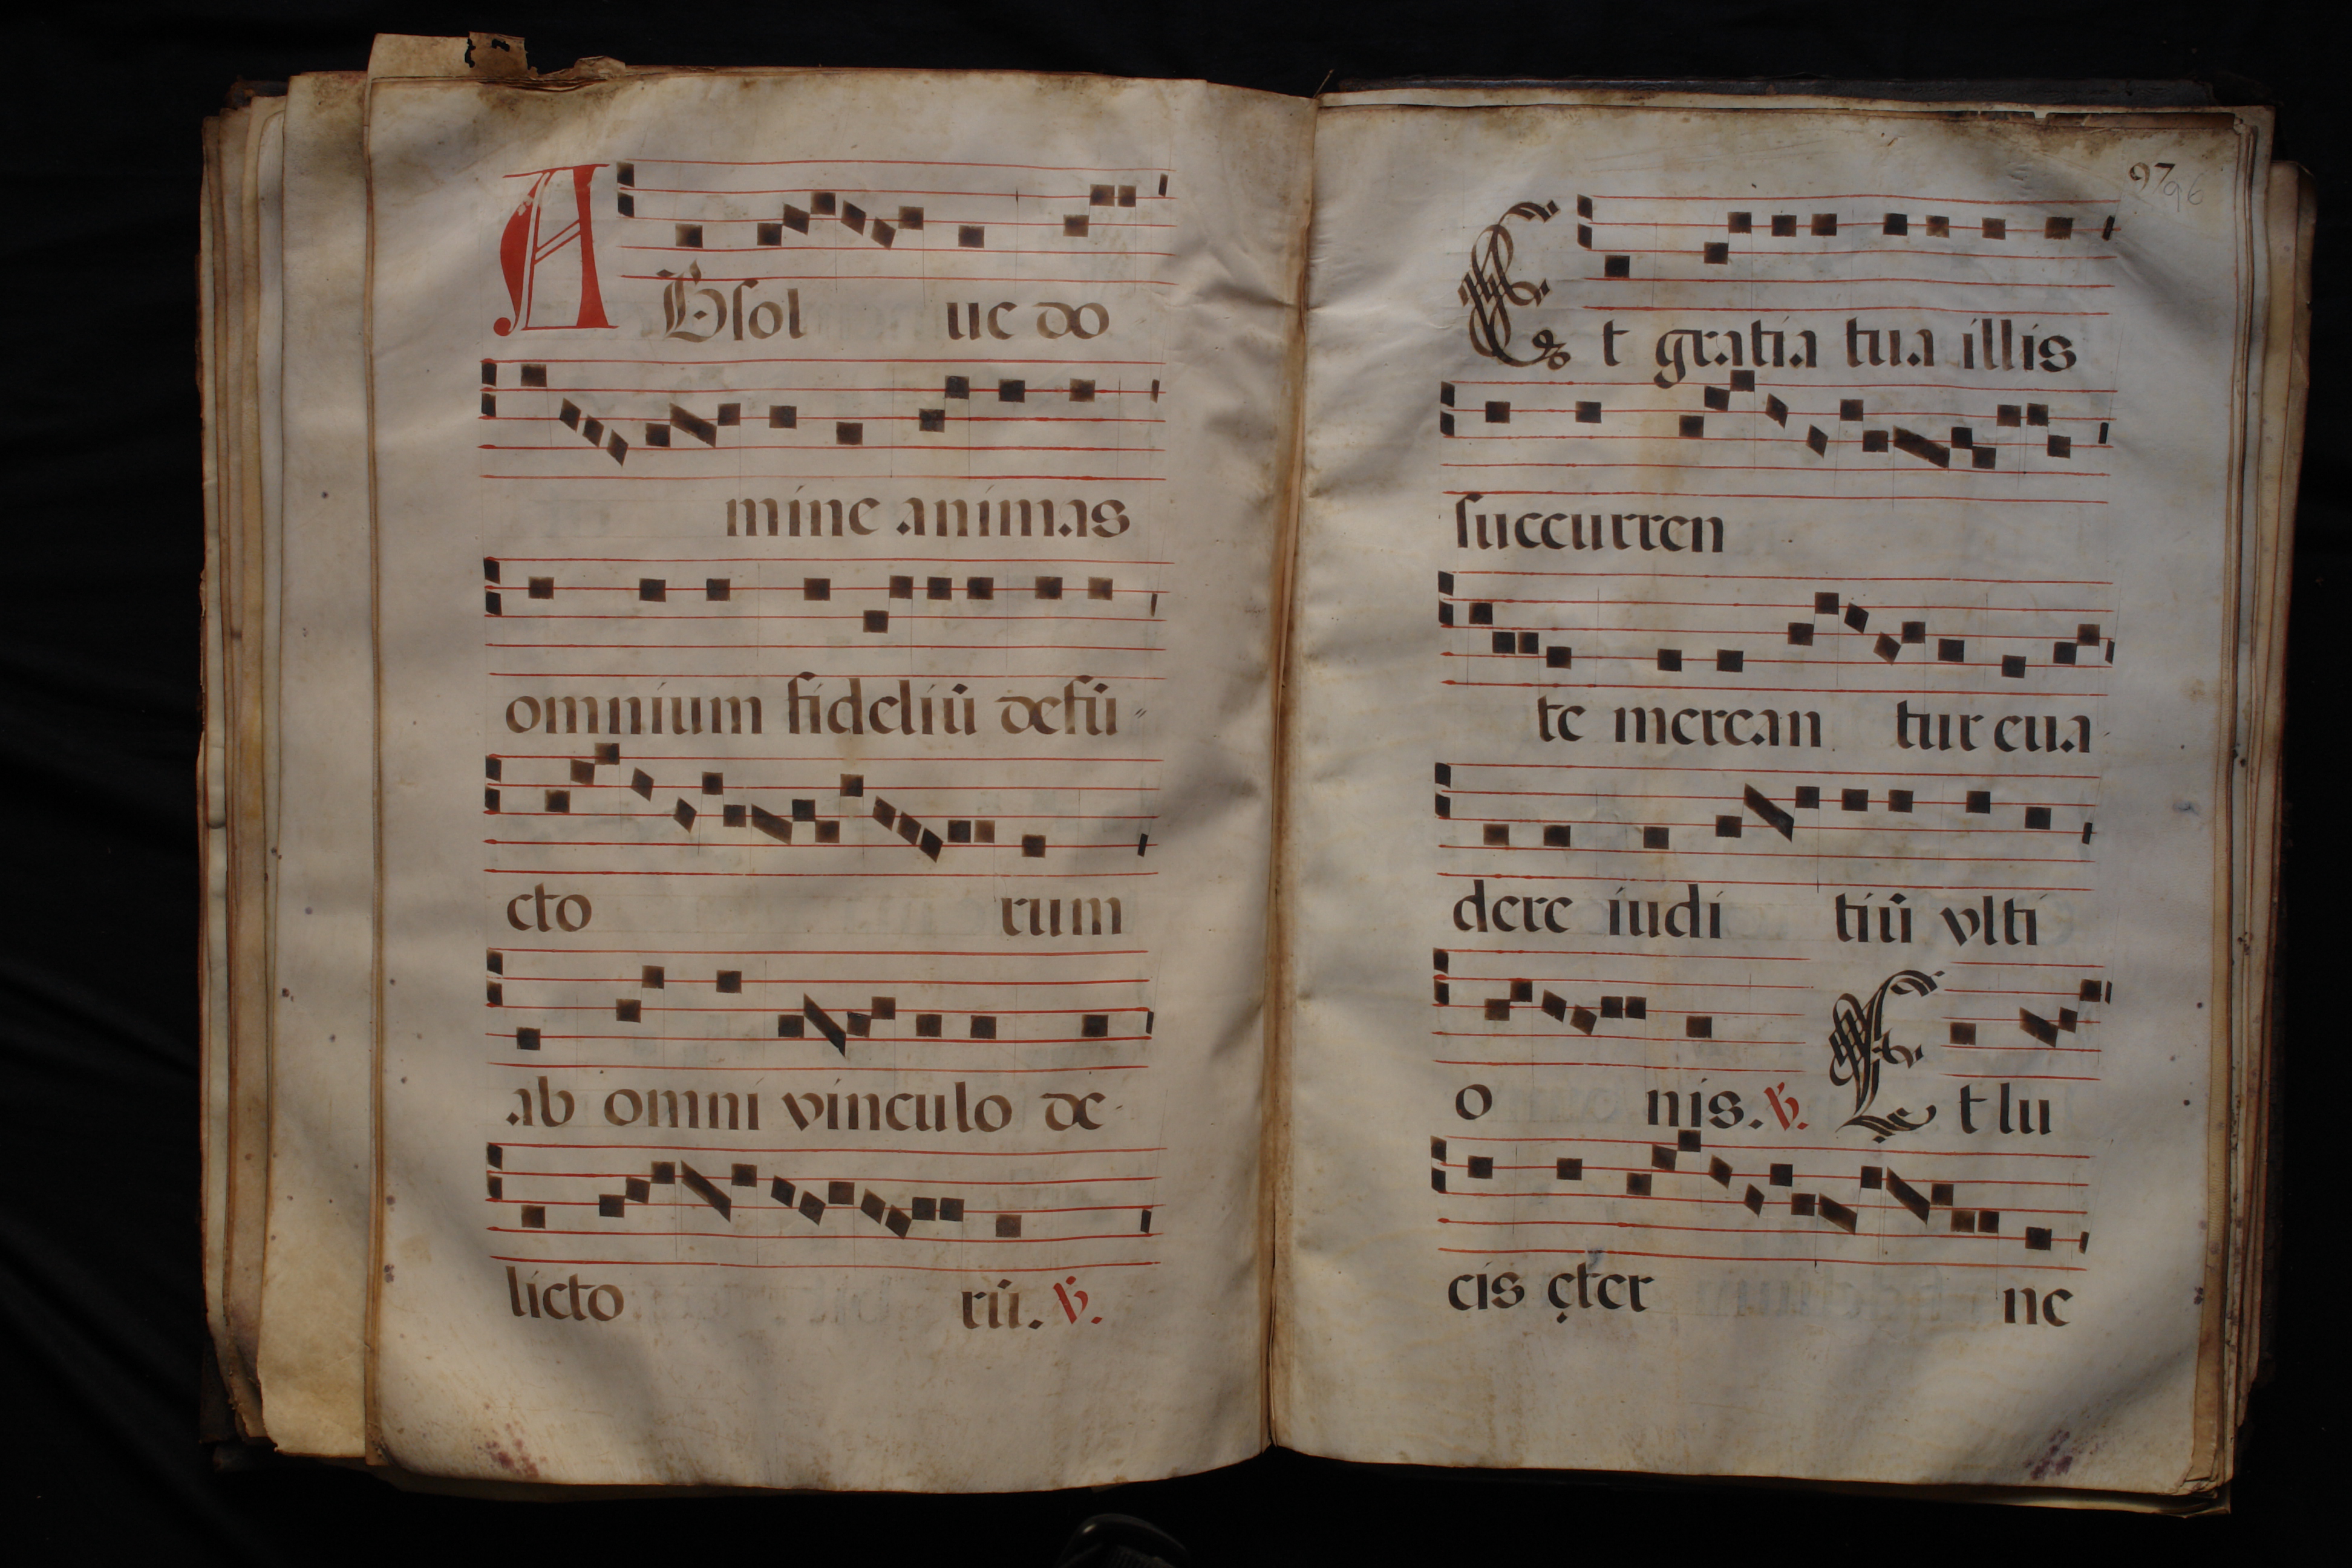 ABsol ue do
mine animas
omnium fideliū defū
cto rum
ab omni vinculo de
licto rū. ℣.
97 96
Et gratia tua illis
succurren
te merean tur eua
dere iudi tiū vlti
o nis. ℣. Et lu
cis ęter ne